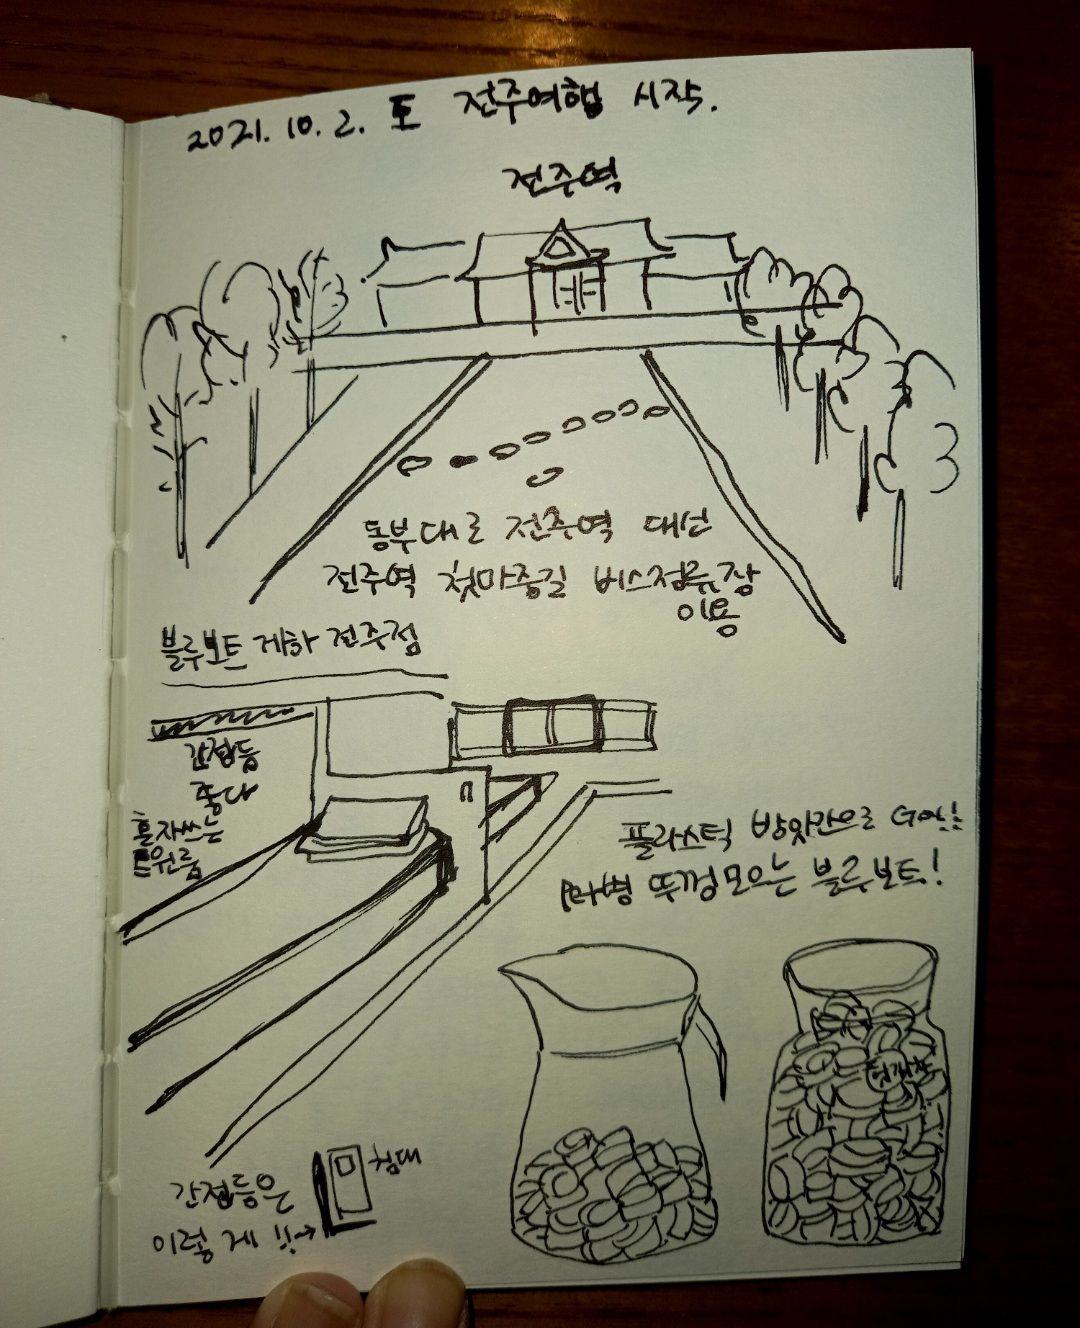 2021. 10. 2. 토 전주여행 시작.
전주역
동부대로 전주역 대신
전주역 첫마중길 버스정류장
이용
블루보트 게하 전주점
간접등
좋다
혼자쓰는
원룸
플라스틱 방앗간으로 Go!!
뚜껑모으는 블루보트!
간접등은
이렇게!!→
침대